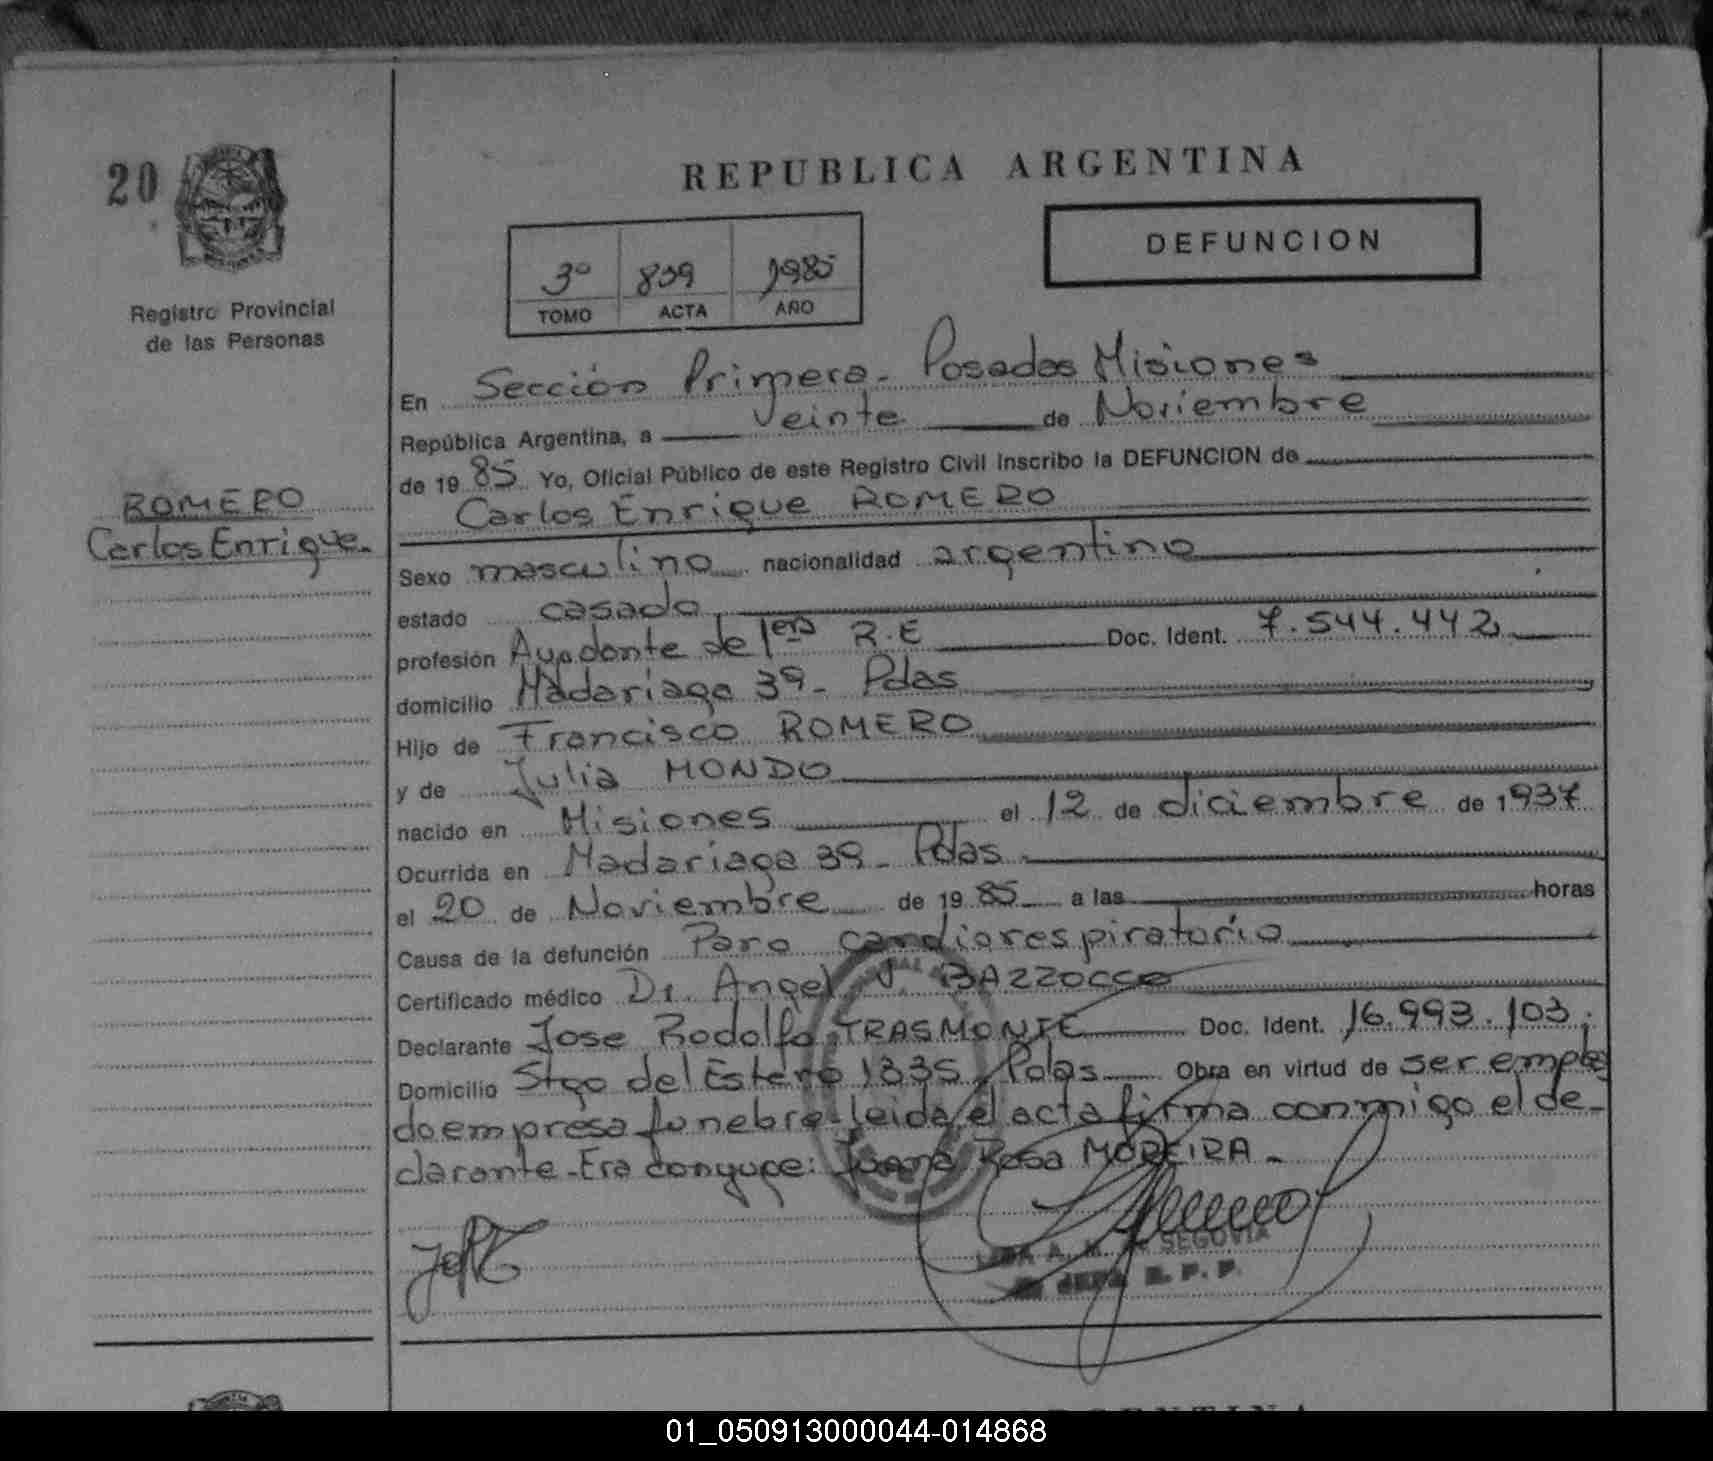 20
REPUBLICA ARGENTINA
DEFUNCION
3º 839 1985
TOMO ACTA AÑO
Registro Provincial
de las Personas
En Sección Primera - Posadas Misiones
República Argentina, a veinte de Noviembre
de 1985 Yo, Oficial Público de este Registro Civil inscribo la DEFUNCION de
Carlos Enrique ROMERO
ROMERO
Carlos Enrique.
Sexo masculino nacionalidad argentino
estado casado
profesión Ayudante de 1era R.E Doc. Ident. 7.544.442
domicilio Madariaga 39 - Pdas
Hijo de Francisco ROMERO
y de Julia MONDO
nacido en Misiones el 12 de diciembre de 1937
Ocurrida en Madariaga 39 - Pdas
el 20 de Noviembre de 1985 a las horas
Causa de la defunción Paro cardiorespiratorio
Certificado médico Dr. Angel V. BAZZOCCO
Declarante Jose Rodolfo TRASMONTE Doc. Ident. 16.993.103;
Domicilio Stgo del Estero 1335 Pdas Obra en virtud de ser emplea
do empresa funebre - leida el acta firma conmigo el de-
clarante - Era conyuge: Juana Rosa MOREIRA -
A. M. DE SEGOVIA
JEFA R. P. P.
ARGENTINA
01_050913000044-014868